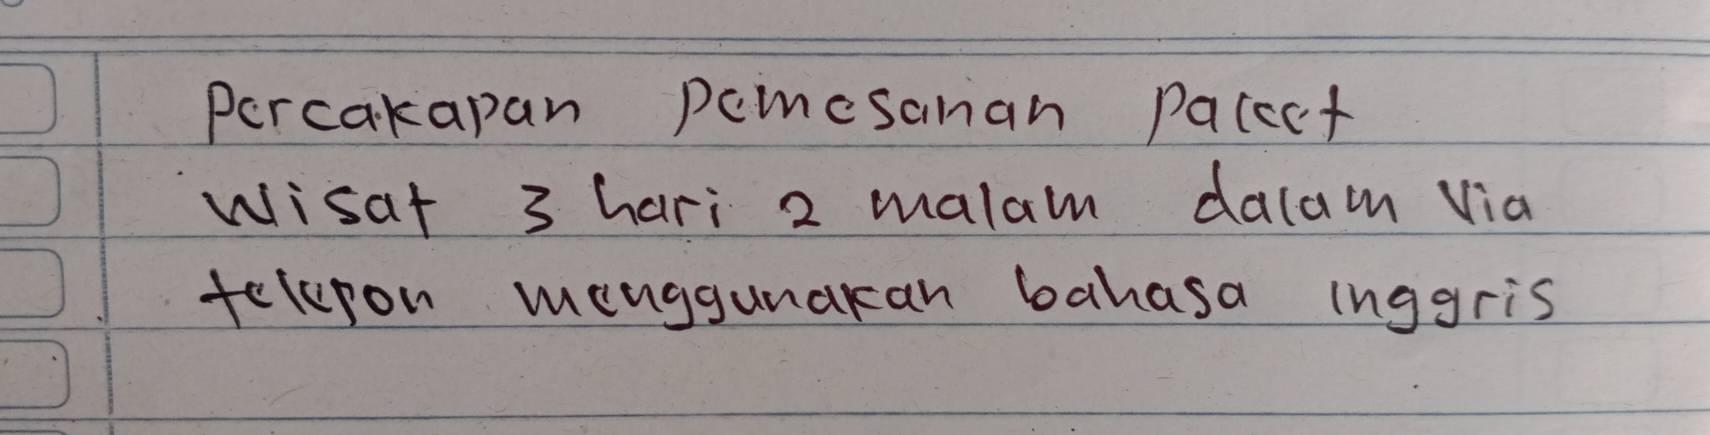 Percakapan pemesanan paket
wisat 3 hari 2 malam dalam via
telepon menggunakan bahasa inggris